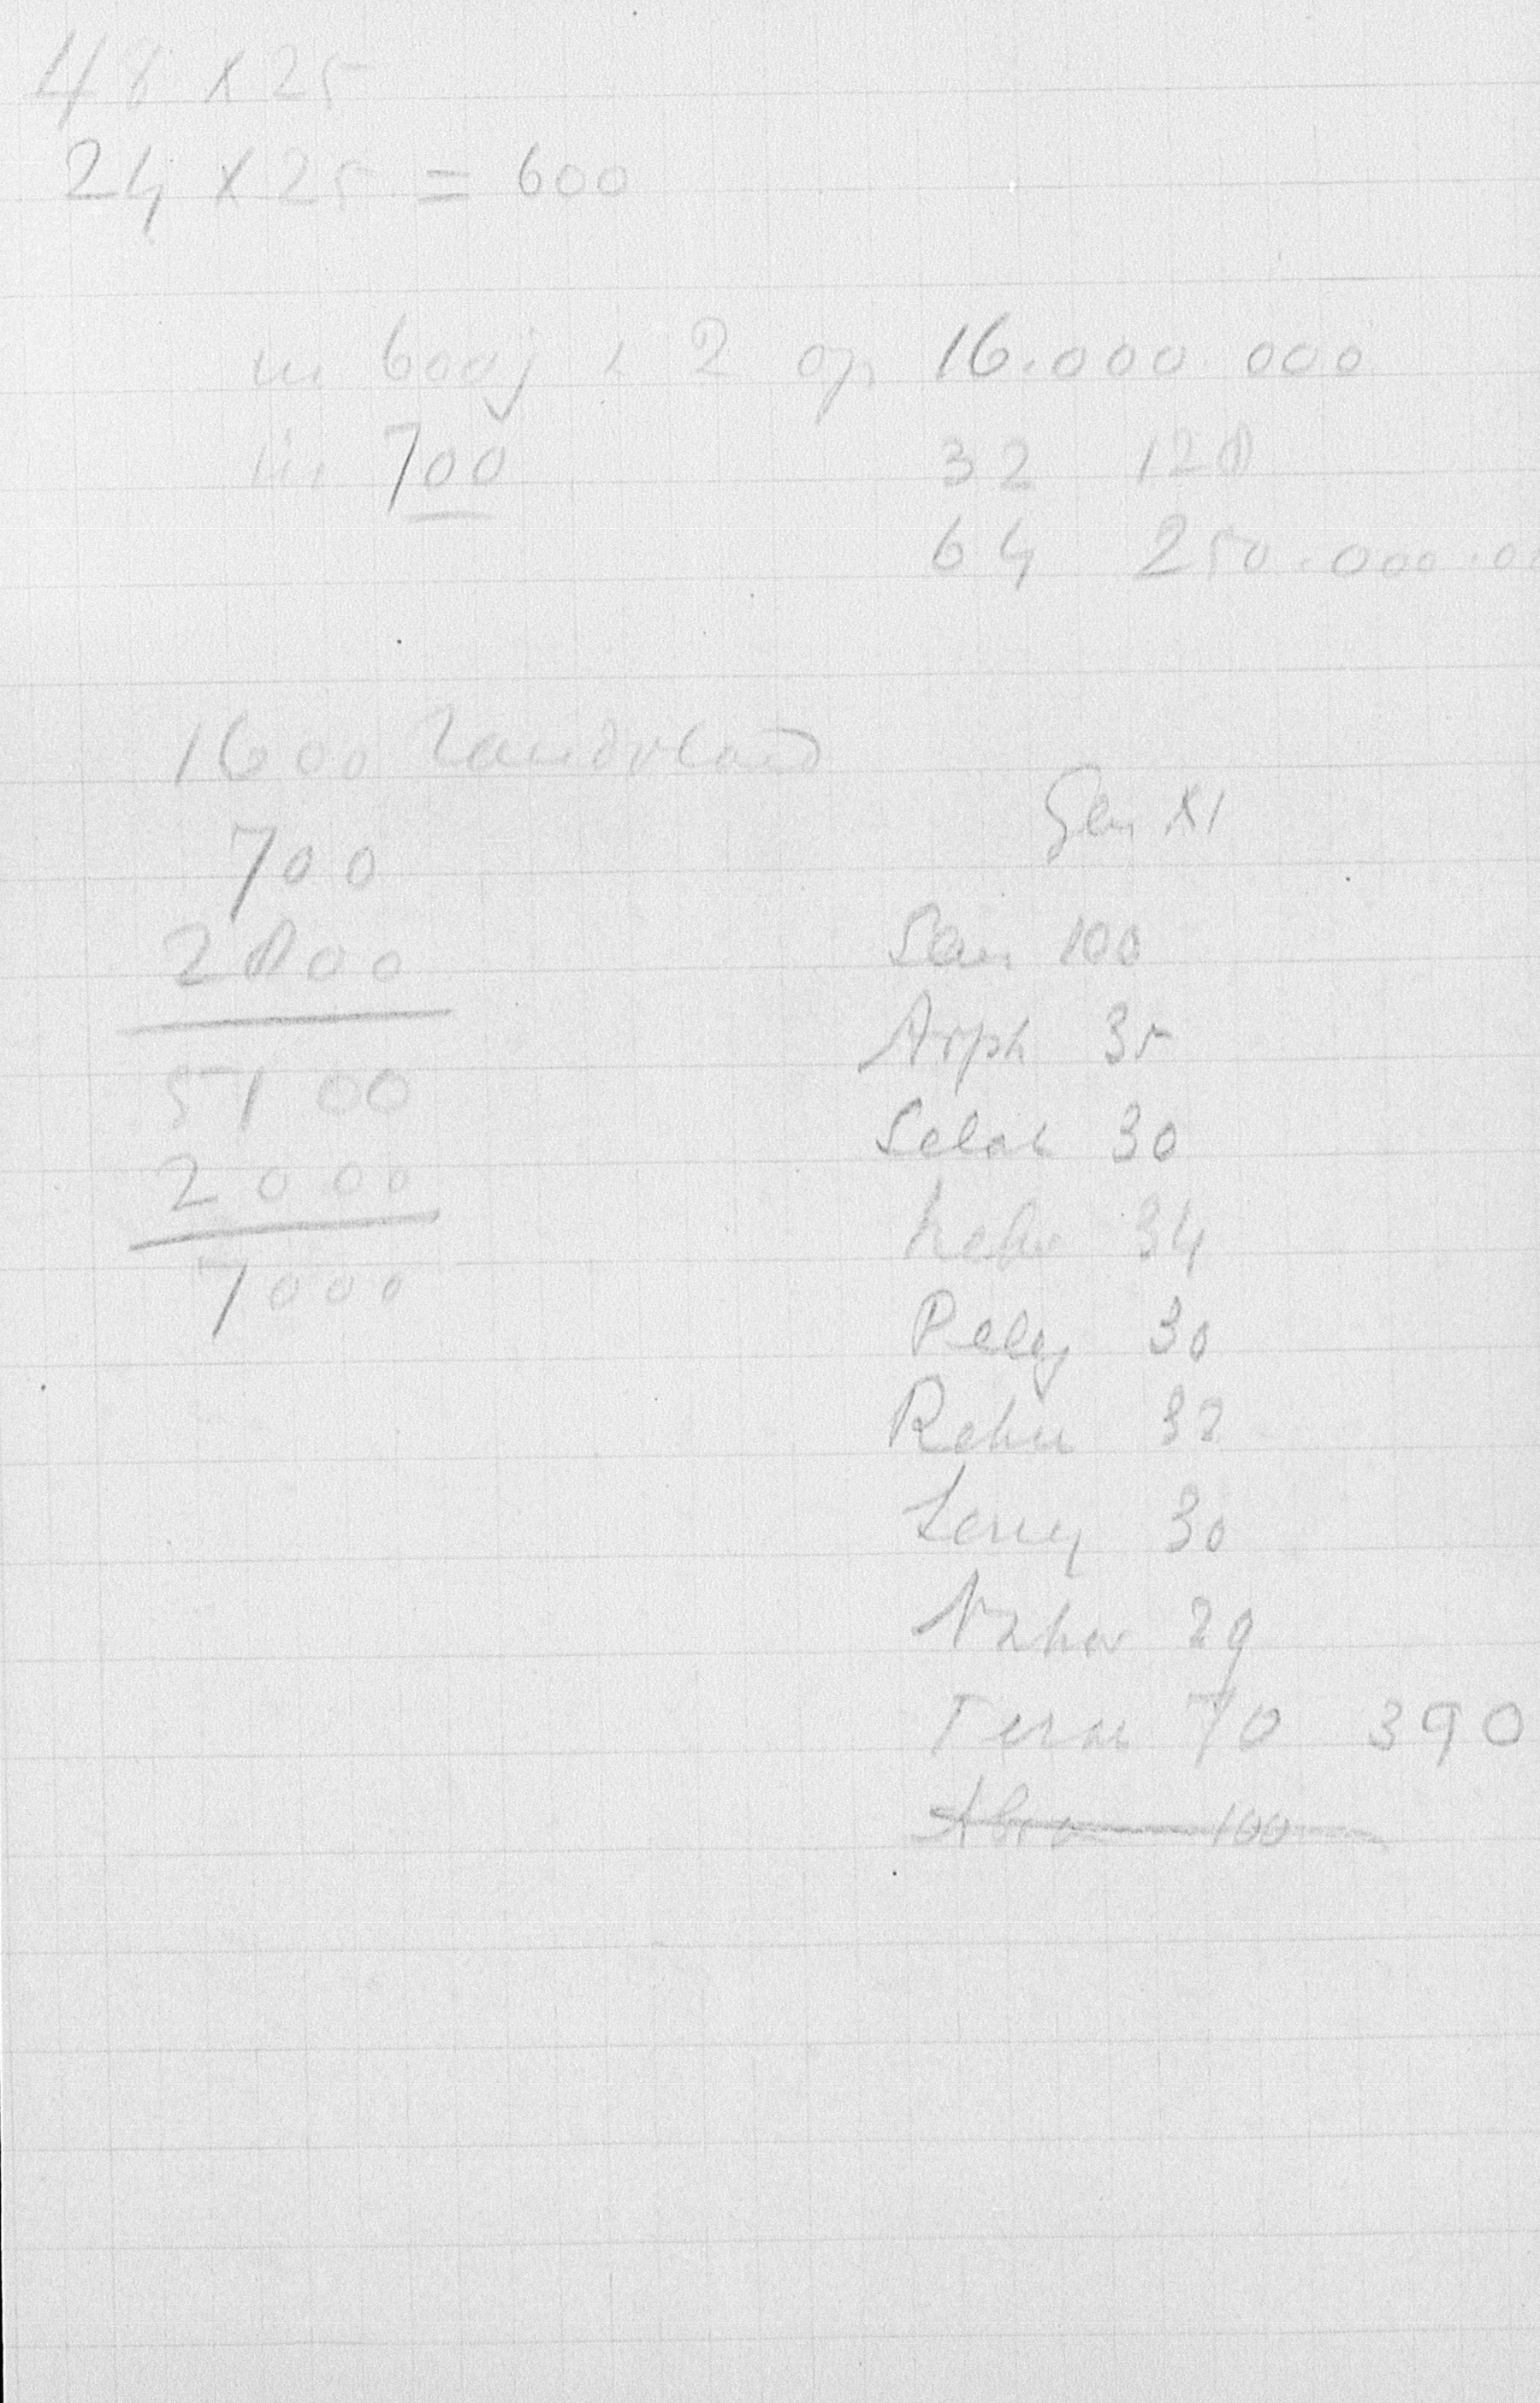 48 x 25
24 x 25 = 600
in 600j x 2 op 16.000.000
in 700 32 128
64 250.000.00
1600 Zandvland
700
2800
5100
2000
7000
Gen XI
Sem 100
Arph 35
Selah 30
Heber 34
Peleg 30
Rehu 32
Serug 30
Nahor 29
Terah 70 390
Abra 100